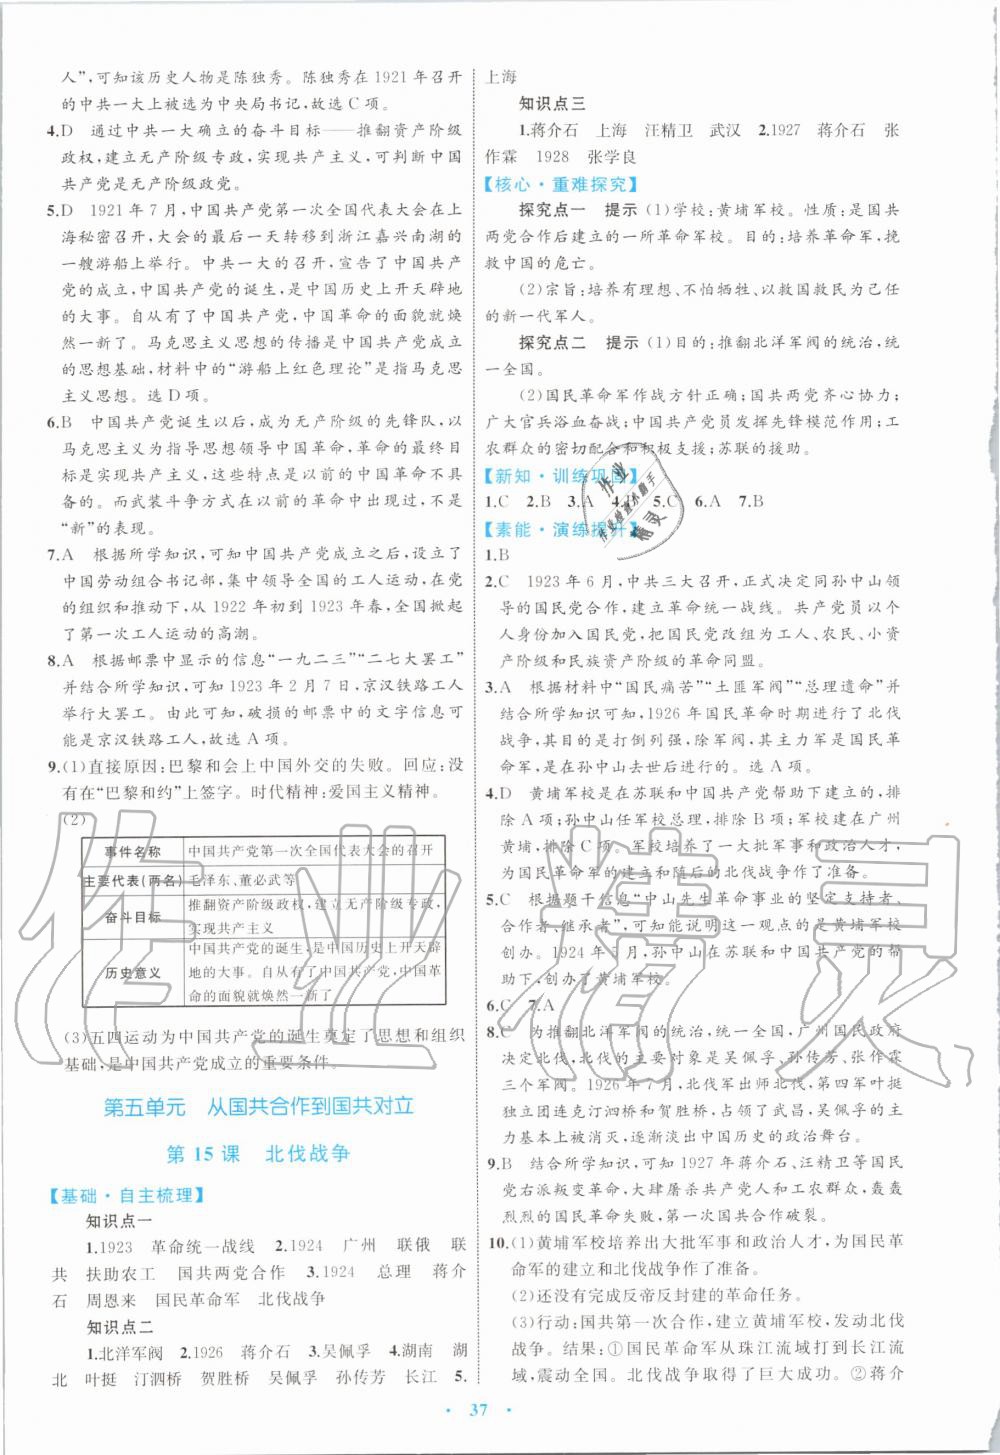 人”,可知该历史人物是陈独秀。陈独秀在1921年召开
的中共一大上被选为中央局书记,故选C项。
4.D 通过中共一大确立的奋斗目标——推翻资产阶级
政权,建立无产阶级专政,实现共产主义,可判断中国
共产党是无产阶级政党。
5.D 1921年7月,中国共产党第一次全国代表大会在上
海秘密召开,大会的最后一天转移到浙江嘉兴南湖的
一艘游船上举行。中共一大的召开,宣告了中国共产
党的成立,中国共产党的诞生,是中国历史上开天辟地
的大事。自从有了中国共产党,中国革命的面貌就焕
然一新了。马克思主义思想的传播是中国共产党成立
的思想基础,材料中的“游船上红色理论”是指马克思
主义思想。选D项。
6.B 中国共产党诞生以后,成为无产阶级的先锋队,以
马克思主义为指导思想领导中国革命,革命的最终目
标是实现共产主义,这些特点是以前的中国革命不具
备的。而武装斗争方式在以前的革命中出现过,不是
“新”的表现。
7.A 根据所学知识,可知中国共产党成立之后,设立了
中国劳动组合书记部,集中领导全国的工人运动,在党
的组织和推动下,从1922年初到1923年春,全国掀起
了第一次工人运动的高潮。
8.A 根据邮票中显示的信息“一九二三”“二七大罢工”
并结合所学知识,可知1923年2月7日,京汉铁路工人
举行大罢工。由此可知,破损的邮票中的文字信息可
能是京汉铁路工人,故选A项。
9.(1)直接原因:巴黎和会上中国外交的失败。回应:没
有在“巴黎和约”上签字。时代精神:爱国主义精神。
(2)
事件名称 中国共产党第一次全国代表大会的召开
主要代表(两名) 毛泽东、董必武等
奋斗目标 推翻资产阶级政权,建立无产阶级专政,
实现共产主义
历史意义 中国共产党的诞生,是中国历史上开天辟
地的大事。自从有了中国共产党,中国革
命的面貌就焕然一新了
(3)五四运动为中国共产党的诞生奠定了思想和组织
基础,是中国共产党成立的重要条件。
第五单元 从国共合作到国共对立
第15课 北伐战争
【基础·自主梳理】
知识点一
1.1923 革命统一战线 2.1924 广州 联俄 联
共 扶助农工 国共两党合作 3.1924 总理 蒋介
石 周恩来 国民革命军 北伐战争
知识点二
1.北洋军阀 2.1926 蒋介石 3.吴佩孚 4.湖南 湖
北 叶挺 汀泗桥 贺胜桥 吴佩孚 孙传芳 长江 5.
上海
知识点三
1.蒋介石 上海 汪精卫 武汉 2.1927 蒋介石 张
作霖 1928 张学良
【核心·重难探究】
探究点一 提示 (1)学校:黄埔军校。性质:是国共
两党合作后建立的一所革命军校。目的:培养革命军,挽
救中国的危亡。
(2)宗旨:培养有理想、不怕牺牲、以救国救民为己任
的新一代军人。
探究点二 提示 (1)目的:推翻北洋军阀的统治,统
一全国。
(2)国民革命军作战方针正确;国共两党齐心协力;
广大官兵浴血奋战;中国共产党员发挥先锋模范作用;工
农群众的密切配合和积极支援;苏联的援助。
【新知·训练巩固】
1.C 2.B 3.A 4. 5.C 6.A 7.B
【素能·演练提升】
1.B
2.C 1923年6月,中共三大召开,正式决定同孙中山领
导的国民党合作,建立革命统一战线。共产党员以个
人身份加入国民党,把国民党改组为工人、农民、小资
产阶级和民族资产阶级的革命同盟。
3.A 根据材料中“国民痛苦”“土匪军阀”“总理遗命”并
结合所学知识可知,1926年国民革命时期进行了北伐
战争,其目的是打倒列强,除军阀,其主力军是国民革
命军,是在孙中山去世后进行的。选A项。
4.D 黄埔军校是在苏联和中国共产党帮助下建立的,排
除A项;孙中山任军校总理,排除B项;军校建在广州
黄埔,排除C项。军校培养了一大批军事和政治人才,
为国民革命军的建立和随后的北伐战争作了准备。
5.C 根据题干信息“中山先生革命事业的坚定支持者、
合作者、继承者”,可知能说明这一观点的是黄埔军校
创办。1924年5月,孙中山在苏联和中国共产党的帮
助下,创办了黄埔军校。
6.C 7.A
8.C 为推翻北洋军阀的统治,统一全国,广州国民政府
决定北伐,北伐的主要对象是吴佩孚、孙传芳、张作霖
三个军阀。1926年7月,北伐军出师北伐,第四军叶挺
独立团连克汀泗桥和贺胜桥,直逼武昌,吴佩孚的主
力基本上被消灭,逐渐淡出中国历史的政治舞台。
9.B 结合所学知识,可知1927年蒋介石、汪精卫等国民
党右派叛变革命,大肆屠杀共产党人和工农群众,轰轰
烈烈的国民革命失败,第一次国共合作破裂。
10.(1)黄埔军校培养出大批军事和政治人才,为国民革
命军的建立和北伐战争作了准备。
(2)还没有完成反帝反封建的革命任务。
(3)行动:国共第一次合作,建立黄埔军校,发动北伐
战争。结果:①国民革命军从珠江流域打到长江流
域,震动全国。北伐战争取得了巨大成功。②蒋介
· 37 ·
作业精灵